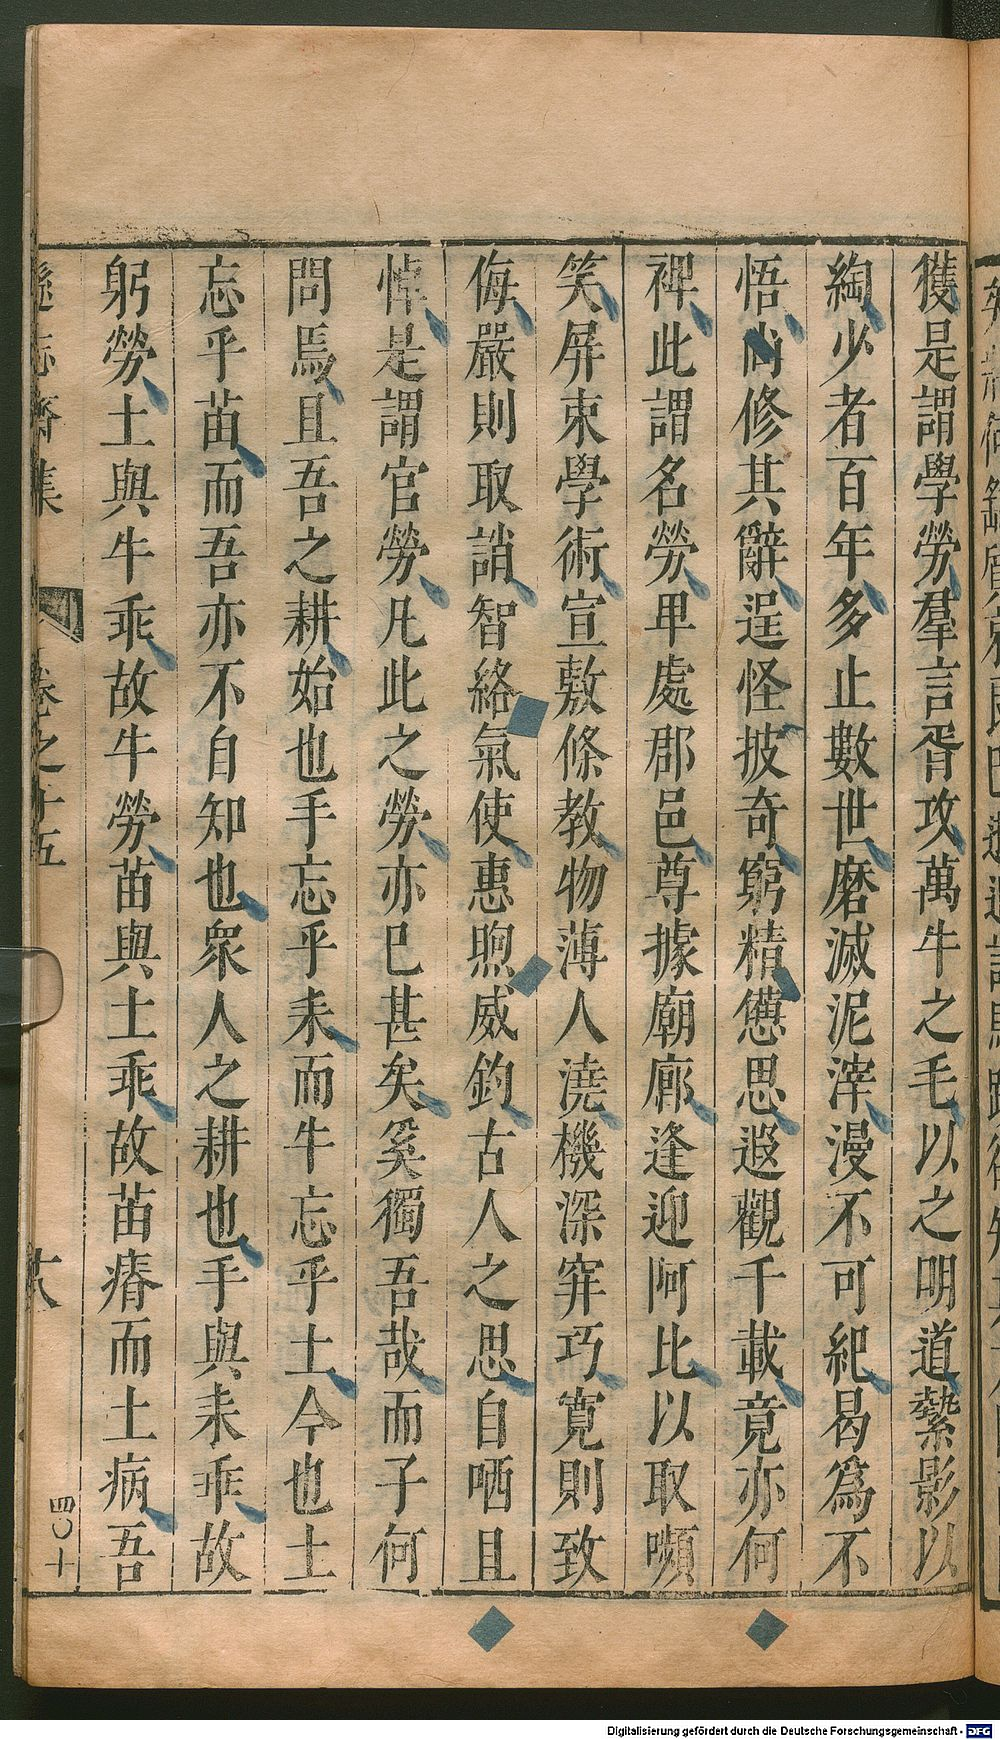 獲是謂學勞羣言胥攻萬牛之毛以之明道縶影以
綯少者百年多止數世磨滅泥滓漫不可紀曷爲不
悟尚修其辭逞怪披奇窮精憊思遐觀千載竟亦何
裨此謂名勞卑處郡邑尊據廟廊逢迎阿比以取嚬
笑屏束學術宣敷條教物薄人澆機深穽巧寛則致
侮嚴則取誚智絡氣使惠煦威鈞古人之思自哂且
悼是謂官勞凡此之勞亦已甚矣奚獨吾哉而子何
問焉且吾之耕始也手忘乎耒而牛忘乎土今也土
忘乎苗而吾亦不自知也衆人之耕也手與耒乖故
躬勞土與牛乖故牛勞苗與土乖故苗瘠而土病吾
遜志齋集
卷之十五
十八
四〇十
Digitalisierung gefördert durch die Deutsche Forschungsgemeinschaft - DFG